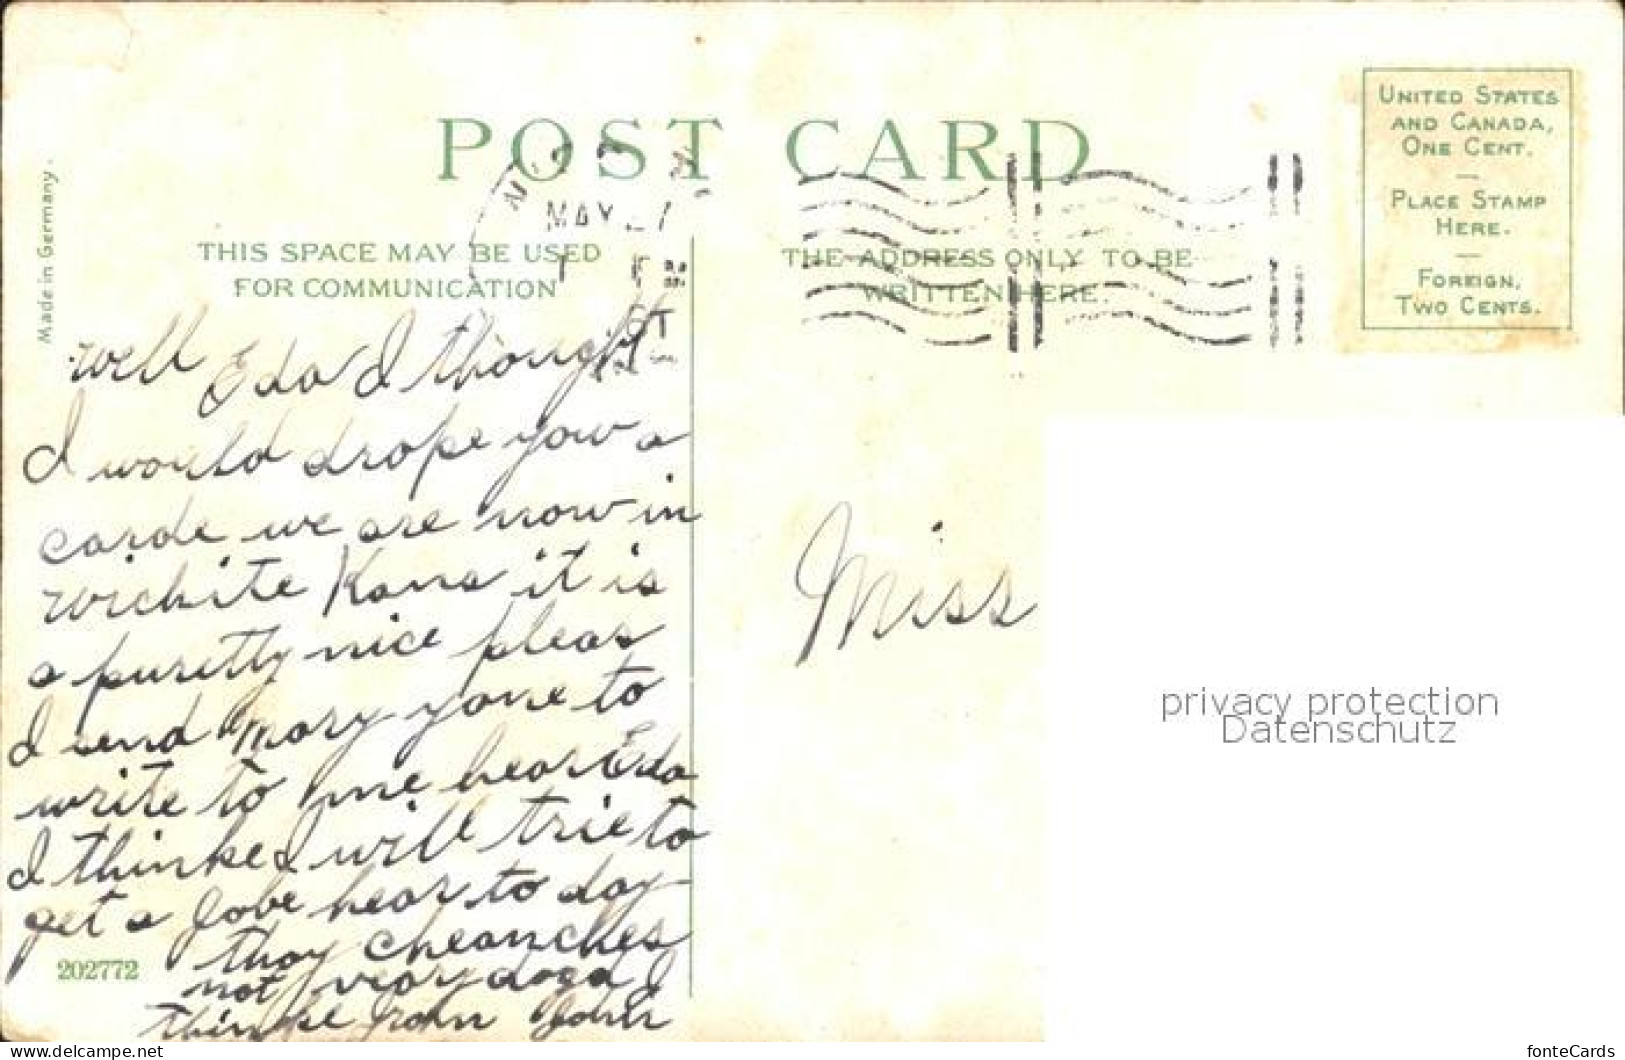 POST CARD
Made in Germany.
UNITED STATES
AND CANADA,
ONE CENT.
PLACE STAMP
HERE.
FOREIGN,
TWO CENTS.
MAY
THIS SPACE MAY BE USED
FOR COMMUNICATION
THE ADDRESS ONLY TO BE
WRITTEN HERE.
well Eda I thought
I would drope yow a
carde we are now in
wichite Kans it is
a puretty nice pleas
I send Mary yone to
write to me hear Eda
I thinke I will trie to
get a Jobe hear to day
thay cheanches
not veary
thinke from John
202772
Miss
privacy protection
Datenschutz
https://www.delcampe.net
fonteCards